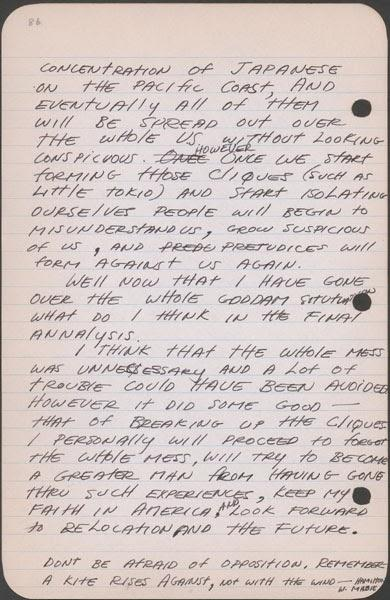 86
CONCENTRATION OF JAPANESE
ON THE PACIFIC COAST, AND
EVENTUALLY ALL OF THEM
WILL BE SPREAD OUT OVER
THE WHOLE US WITHOUT LOOKING
CONSPICUOUS. ONCE HOWEVER ONCE WE START
FORMING THOSE CLIQUES (SUCH AS
LITTLE TOKIO) AND START ISOLATING
OURSELVES PEOPLE WILL BEGIN TO
MISUNDERSTAND US, GROW SUSPICIOUS
OF US, AND PREDU PREJUDICES WILL
FORM AGAINST US AGAIN.
WELL NOW THAT I HAVE GONE
OVER THE WHOLE GODDAM SITUTATION
WHAT DO I THINK IN THE FINAL
ANNALYSIS.
I THINK THAT THE WHOLE MESS
WAS UNNECESSARY AND A LOT OF
TROUBLE COULD HAVE BEEN AVOIDED
HOWEVER IT DID SOME GOOD —
THAT OF BREAKING UP THE CLIQUES
I PERSONALLY WILL PROCEED TO FORGET
THE WHOLE MESS, WILL TRY TO BECOME
A GREATER MAN FROM HAVING GONE
THRU SUCH EXPERIENCES, KEEP MY
FAITH IN AMERICA, AND LOOK FORWARD
TO RELOCATION AND THE FUTURE.
DONT BE AFRAID OF OPPOSITION. REMEMBER
A KITE RISES AGAINST, NOT WITH THE WIND — HAMILTON
W. MABIE